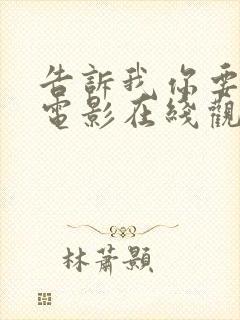 告訴我 你要
電影在綫觀
林蕭顥